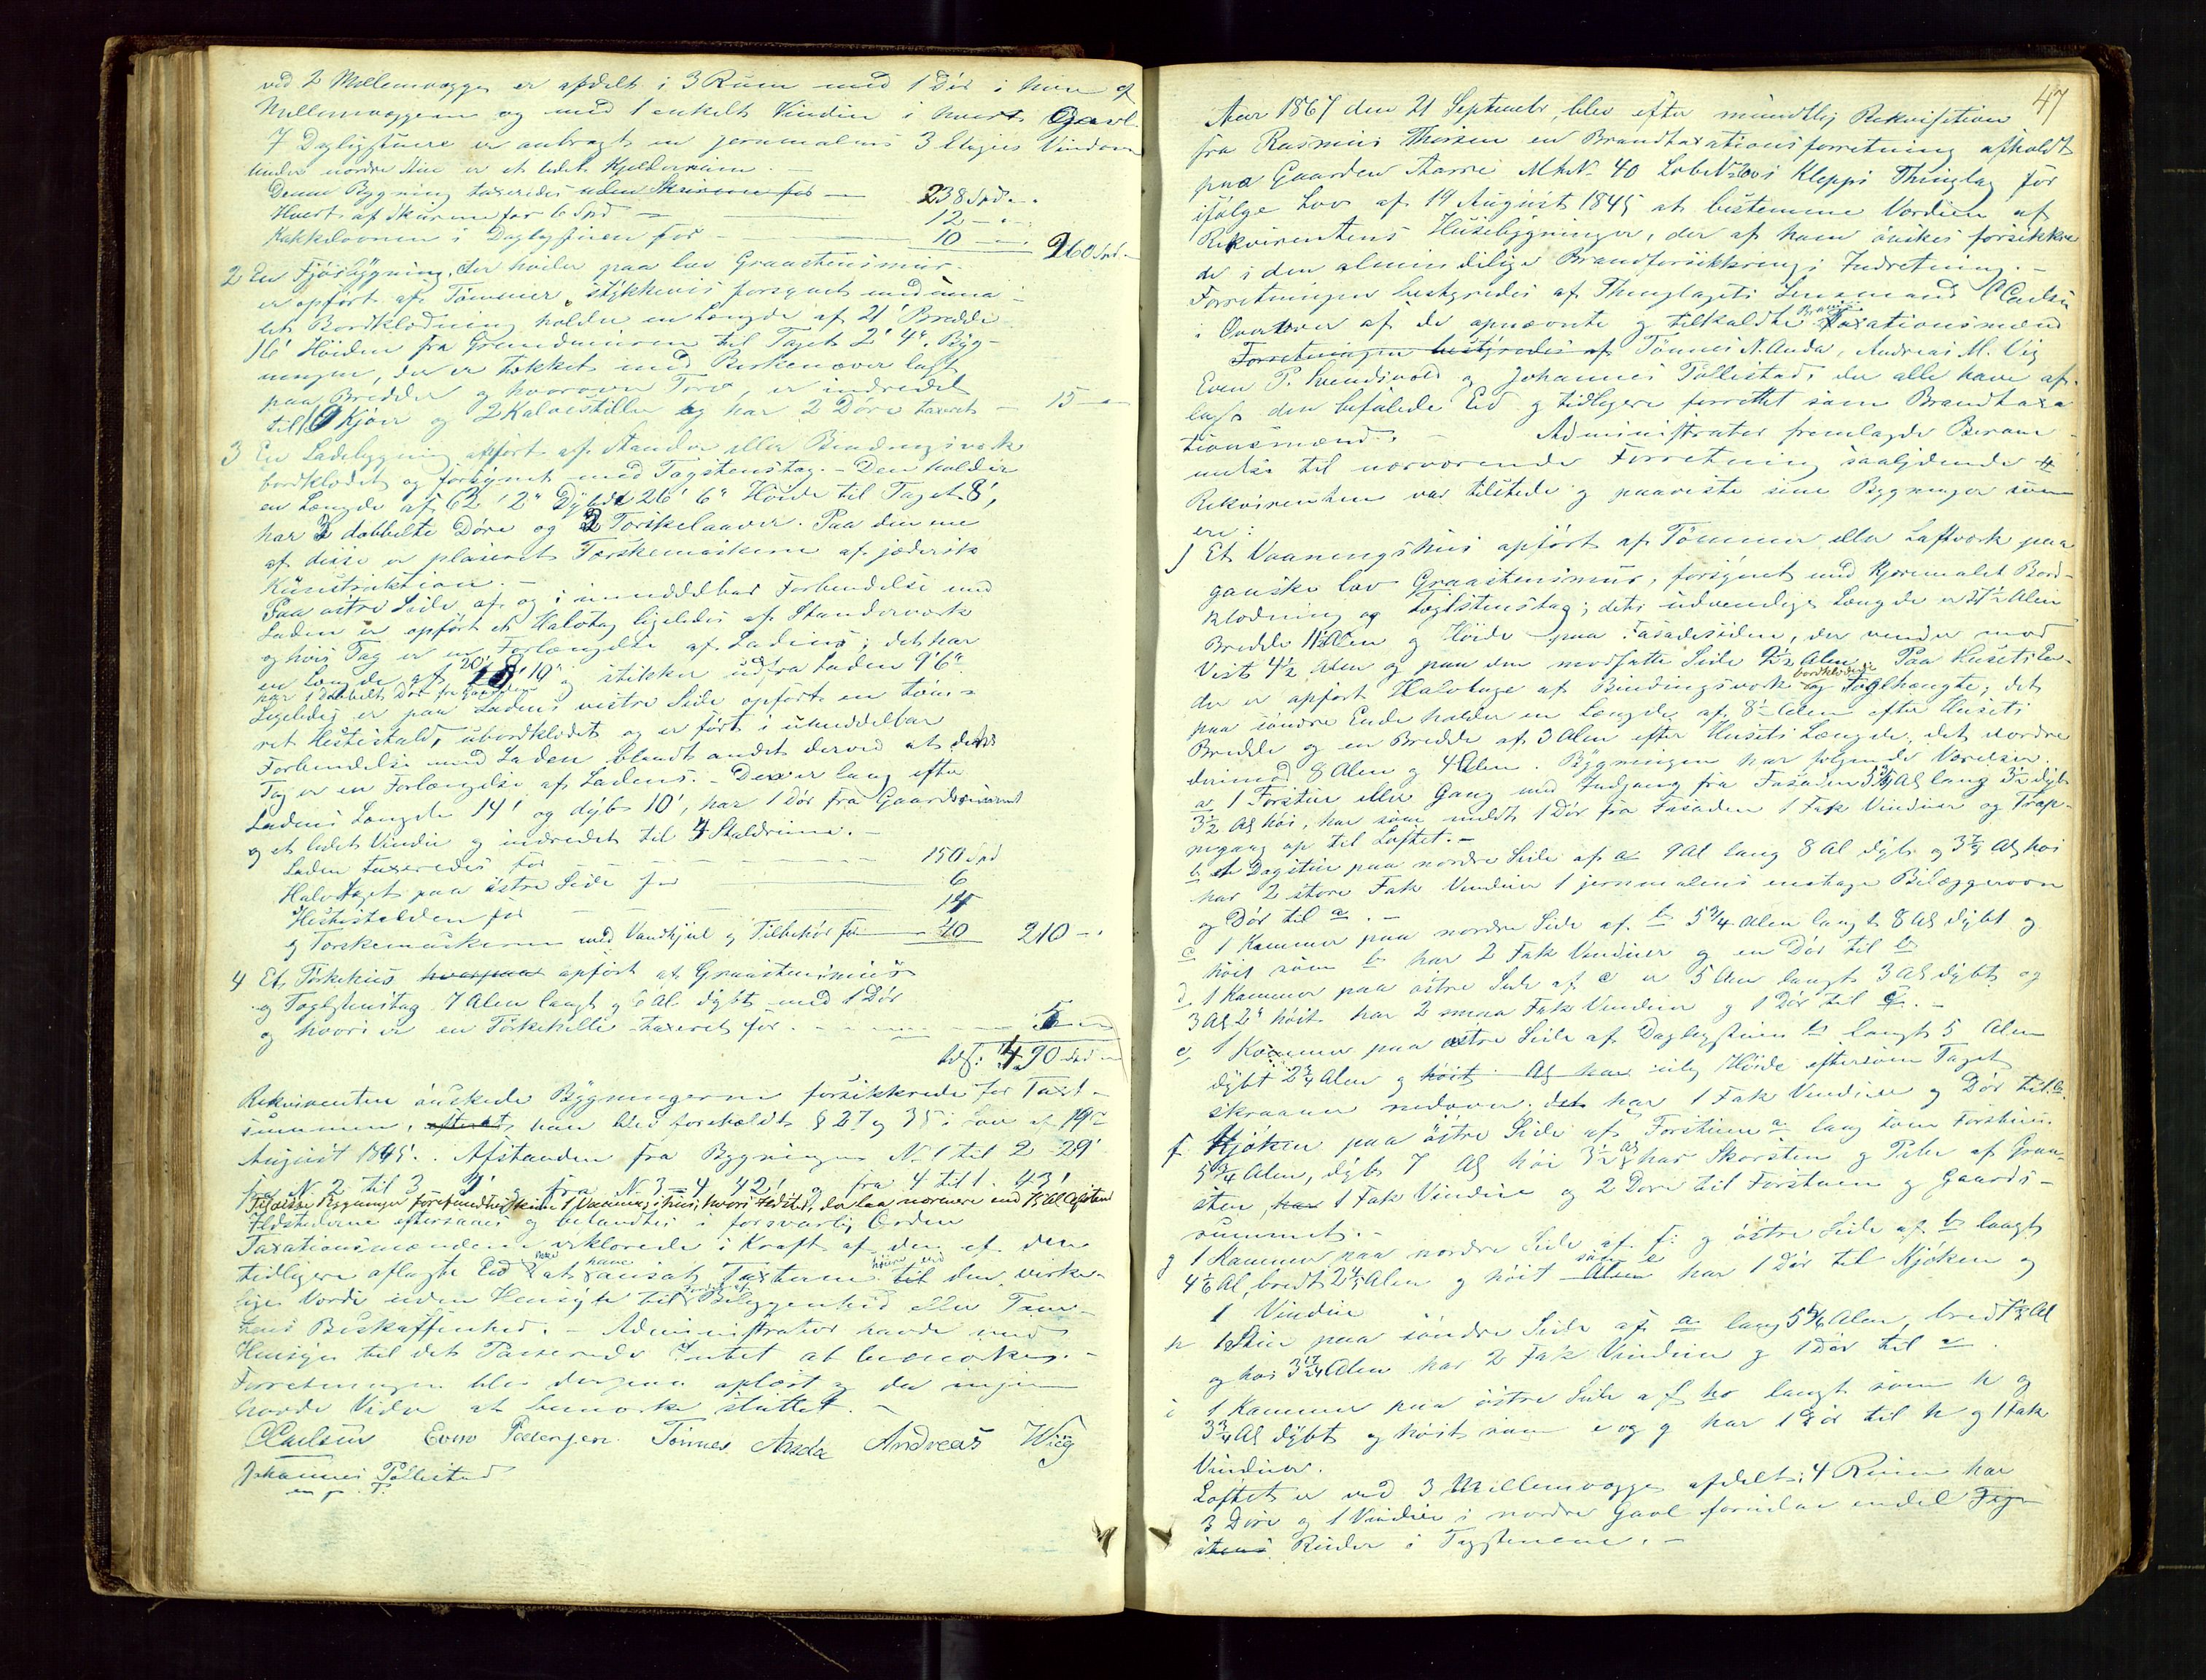 ved 2 Mellemvægge er afdelt i 3 Rum med 1 Dör i hver af
Mellemvæggene og med 1 enkelt Vindue i hvert Gavl.
I Dagligstuen er anbragt en jernmalms 3 Etages Vindovn
Under nordre Stue er et lidet Kjelderrum. -
Denne Bygning taxeredes uden Skurene for — 238 Spd. -
Hvert af Skurene for 6 Spd — 12 — -
Kakkelovnen i Dagligstuen for — 10 — - 260 Spd. -
2 En Fjösbygning, der hviler paa lav Graasteensmuur
er opfört af Tömmer, stykkevis forsynet med uma-
let Bordklædning holder en Længde af 21' Bredde
16' Höiden fra Grundmuren til Taget 2' 4". Byg-
ningen, der er tækket med Birkenæver lagt
paa Bredder og hvorover Torv, er indredet
til 10 Kjöer og 2 Kalvestiller og har 2 Döre taxeret — 15 —
3 En Ladebygning opfört af Stander eller Bindingsværk
bordklædet og forsynet med Tagsteenstag. - Den holder
en Længde af 62' 2" Dybde 26' 6" Höide til Taget 8',
har 3 dobbelte Döre og 2 Torskelaaver. Paa den ene
af disse er plaseret Tærskemaskine af jædersk
Kunstruktion. -
Paa östre Side af og i umiddelbar Forbindelse med
Laden er opfört et Halvtag ligeledes af Standerværk
og hvis Tag er en Forlængelse af Ladens; det har
en Længde af 20' 10" og stikker ud fra Laden 9'6"
har 1 dobbelt Dör fra Gaarden
Ligeledes er paa Ladens vestre Side opfört en töm-
ret Hestestald, ubordklædet og er fört i umiddelbar
Forbindelse med Laden blandt andet derved at dets
Tag er en Forlængelse af Ladens. - Den er lang efter
Ladens Længde 14' og dyb 10', har 1 Dör fra Gaardsrummet
og et lidet Vindue og indredet til 4 Staldrume. -
Laden taxeredes for — 150 Spd
Halvtaget paa östre Side for — 6
Hestestalden for — 14
og Torskemaskinen med Vandhjul og Tilbehör for — 40 210 - -
4 Et Törkehus hvorpaa opfört af Graasteensmuur
og Taglsteenstag 7 Alen langt og 6 Al. dybt med 1 Dör
og hvori er en Törkehelle taxeret for — 5 —
Tils: 490 Spd —
Rekvirenten önskede Bygningerne forsikkrede for Taxt-
summen, efterat han blev foreholdt § 27 og 35 i Lov af 19de
August 1845. Afstanden fra Bygningen No 1 til 2 29'
fra No 2 til 3 9' fra No 3-4 42', og fra 4 til 1. 43'
I disse Bygninger forefandtes kun 1 Vaaningshus, hvori Ildsted, der laa nærmere end 15 Al. Afstand
Ildstederne eftersaaes og befandtes i forsvarlig Orden
Taxationsmændene erklærede i Kraft af den af dem
tidligere aflagte Ed at have ansat Taxterne til den virke-
lige Værdi uden Hensyn til Beliggenhed eller Tom-
tens Beskaffenhed. - Administrator havde med
Hensyn til det Passerede Intet at bemærke. -
Forretningen blev derpaa oplæst og da ingen
havde Videre at bemærke sluttet. -
C Carlsen Even Pedersen Tönnes Anda Andreas Wiig
Johannes Tallestad
m. p. P.
47
Aar 1867 den 21 September, blev efter mundtlig Rekvisition
fra Rasmus Thorsen en Brandtaxationsforretning afholdt
paa Gaarden Aarre M No 40 Löbe No i Klepps Thinglag for
ifölge Lov af 19 August 1845 at bestemme Værdien af
Rekvirentens Husebygninger, der af ham önskes forsikkre
de i den almindelige Brandforsikkrings Indretning. -
Forretningen bestyredes af Thinglagets Lensmand C Carlsen
i Overvær af de opnævnte og tilkaldte Brand Taxationsmænd
Forretningen bestyredes af Tönnes N. Anda, Andreas M. Vig
Even P. Svendsvold og Johannes Tallestad, der alle have af-
lagt den befalede Ed og tidligere forrettet som Brandtaxa
tionsmænd. - Administrator fremlagde Beram-
melse til nærværende Forretning saalydende
Rekvirenten var tilstede og paaviste sine Bygninger som
ere:
1 Et Vaaningshus opfört af Tömmer eller Laftværk paa
ganske lav Graasteensmuur, forsynet med Hjörnmalet Bord-
klædning og Taglsteenstag; dets udvendige Længde er 27½ Alen
Bredde 11½ Alen og Höide paa Fasadesiden, der vender mod
Vest 4½ Alen og paa den modsatte Side 2½ Alen. Paa Husets En-
der er opfört Halvtage af Bindingsværk bordklædt og Taglhængte; det
paa söndre Ende holder en Længde af 8½ Alen efter Husets
Bredde og en Bredde af 3 Alen efter Husets Længde, det nordre
derimod 8 Alen og 4 Alen. Bygningen har fölgende Værelser.
a 1 Forstue eller Gang med Indgang fra Fasaden 5¾ Al lang 3½ dyb
3½ Al höi, har som meldt 1 Dör fra Fasaden 1 Fak Vinduer og Trap-
pegang op til Loftet. -
b et Dagstue paa nordre Side af a 9 Al lang 8 Al dyb og 3¾ Al höi
har 2 store Fak Vinduer 1 jernmalms enetages Bilæggerovn
og Dör til a. -
c 1 Kammer paa nordre Side af b 5¾ Alen langt 8 Al dybt og
höit som b har 2 Fak Vinduer og en Dör til b
d 1 Kammer paa östre Side af c er 5 Alen langt 3 Al dybt og
3 Al 2" höit har 2 smaa Fak Vinduer og 1 Dör til c. -
e 1 Kammer paa östre Side af Dagligstuen b langt 5 Alen
dybt 2¾ Alen og höit Al har ulig Höide eftersom Taget
skraaner nedover. det har 1 Fak Vinduer og Dör til b.
f Kjöken paa östre Side af Forstuen a lang som Forstuen
5¾ Alen, dyb 7 Al höi 3½ Al har Skorsten og Pibe af Graa-
sten, har 1 Fak Vindue og 2 Döre til Forstuen og Gaards-
rummet. -
g 1 Kammer paa nordre Side af f og östre Side af b langt
4⅙ Al, bredt 2⅘ Alen og höit Alen som e har 1 Dör til Kjöken og
1 Vindue
h 1 Stue paa söndre Side af a lang 5⅚ Alen, bred 7½ Al
og höi 3¾ Alen har 2 Fak Vinduer og 1 Dör til a
i 1 Kammer paa östre Side af h langt som h og
3¾ Al dybt og höit som e og g har 1 Dör til h og 1 Fak
Vinduer.
Loftet er ved 3 Mellemvægge afdelt i 4 Rum har
3 Döre og 1 Vindue i nordre Gavl foruden endel
Ruder i Tagstenene. -